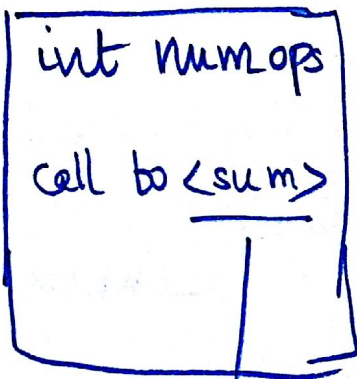 int num_ops
call to <sum>